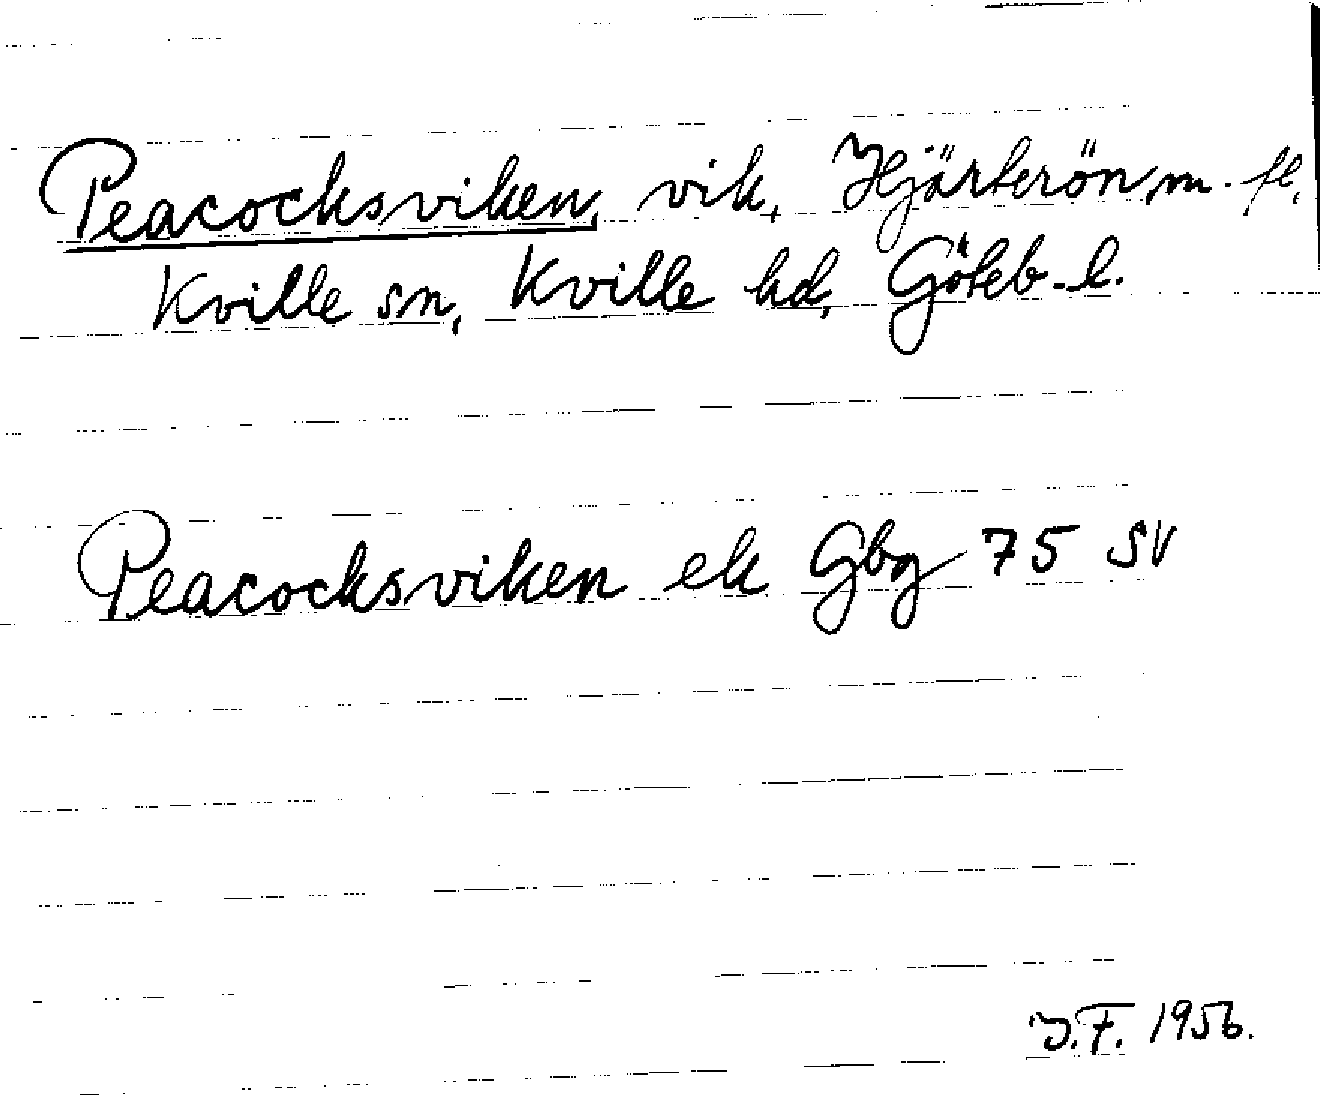 Peacocksviken, vik, Hjärterön m. fl.
Kville sn, Kville hd, Göteb. l.
Peacocksviken ek Gbg 75 SV
J.F. 1956.